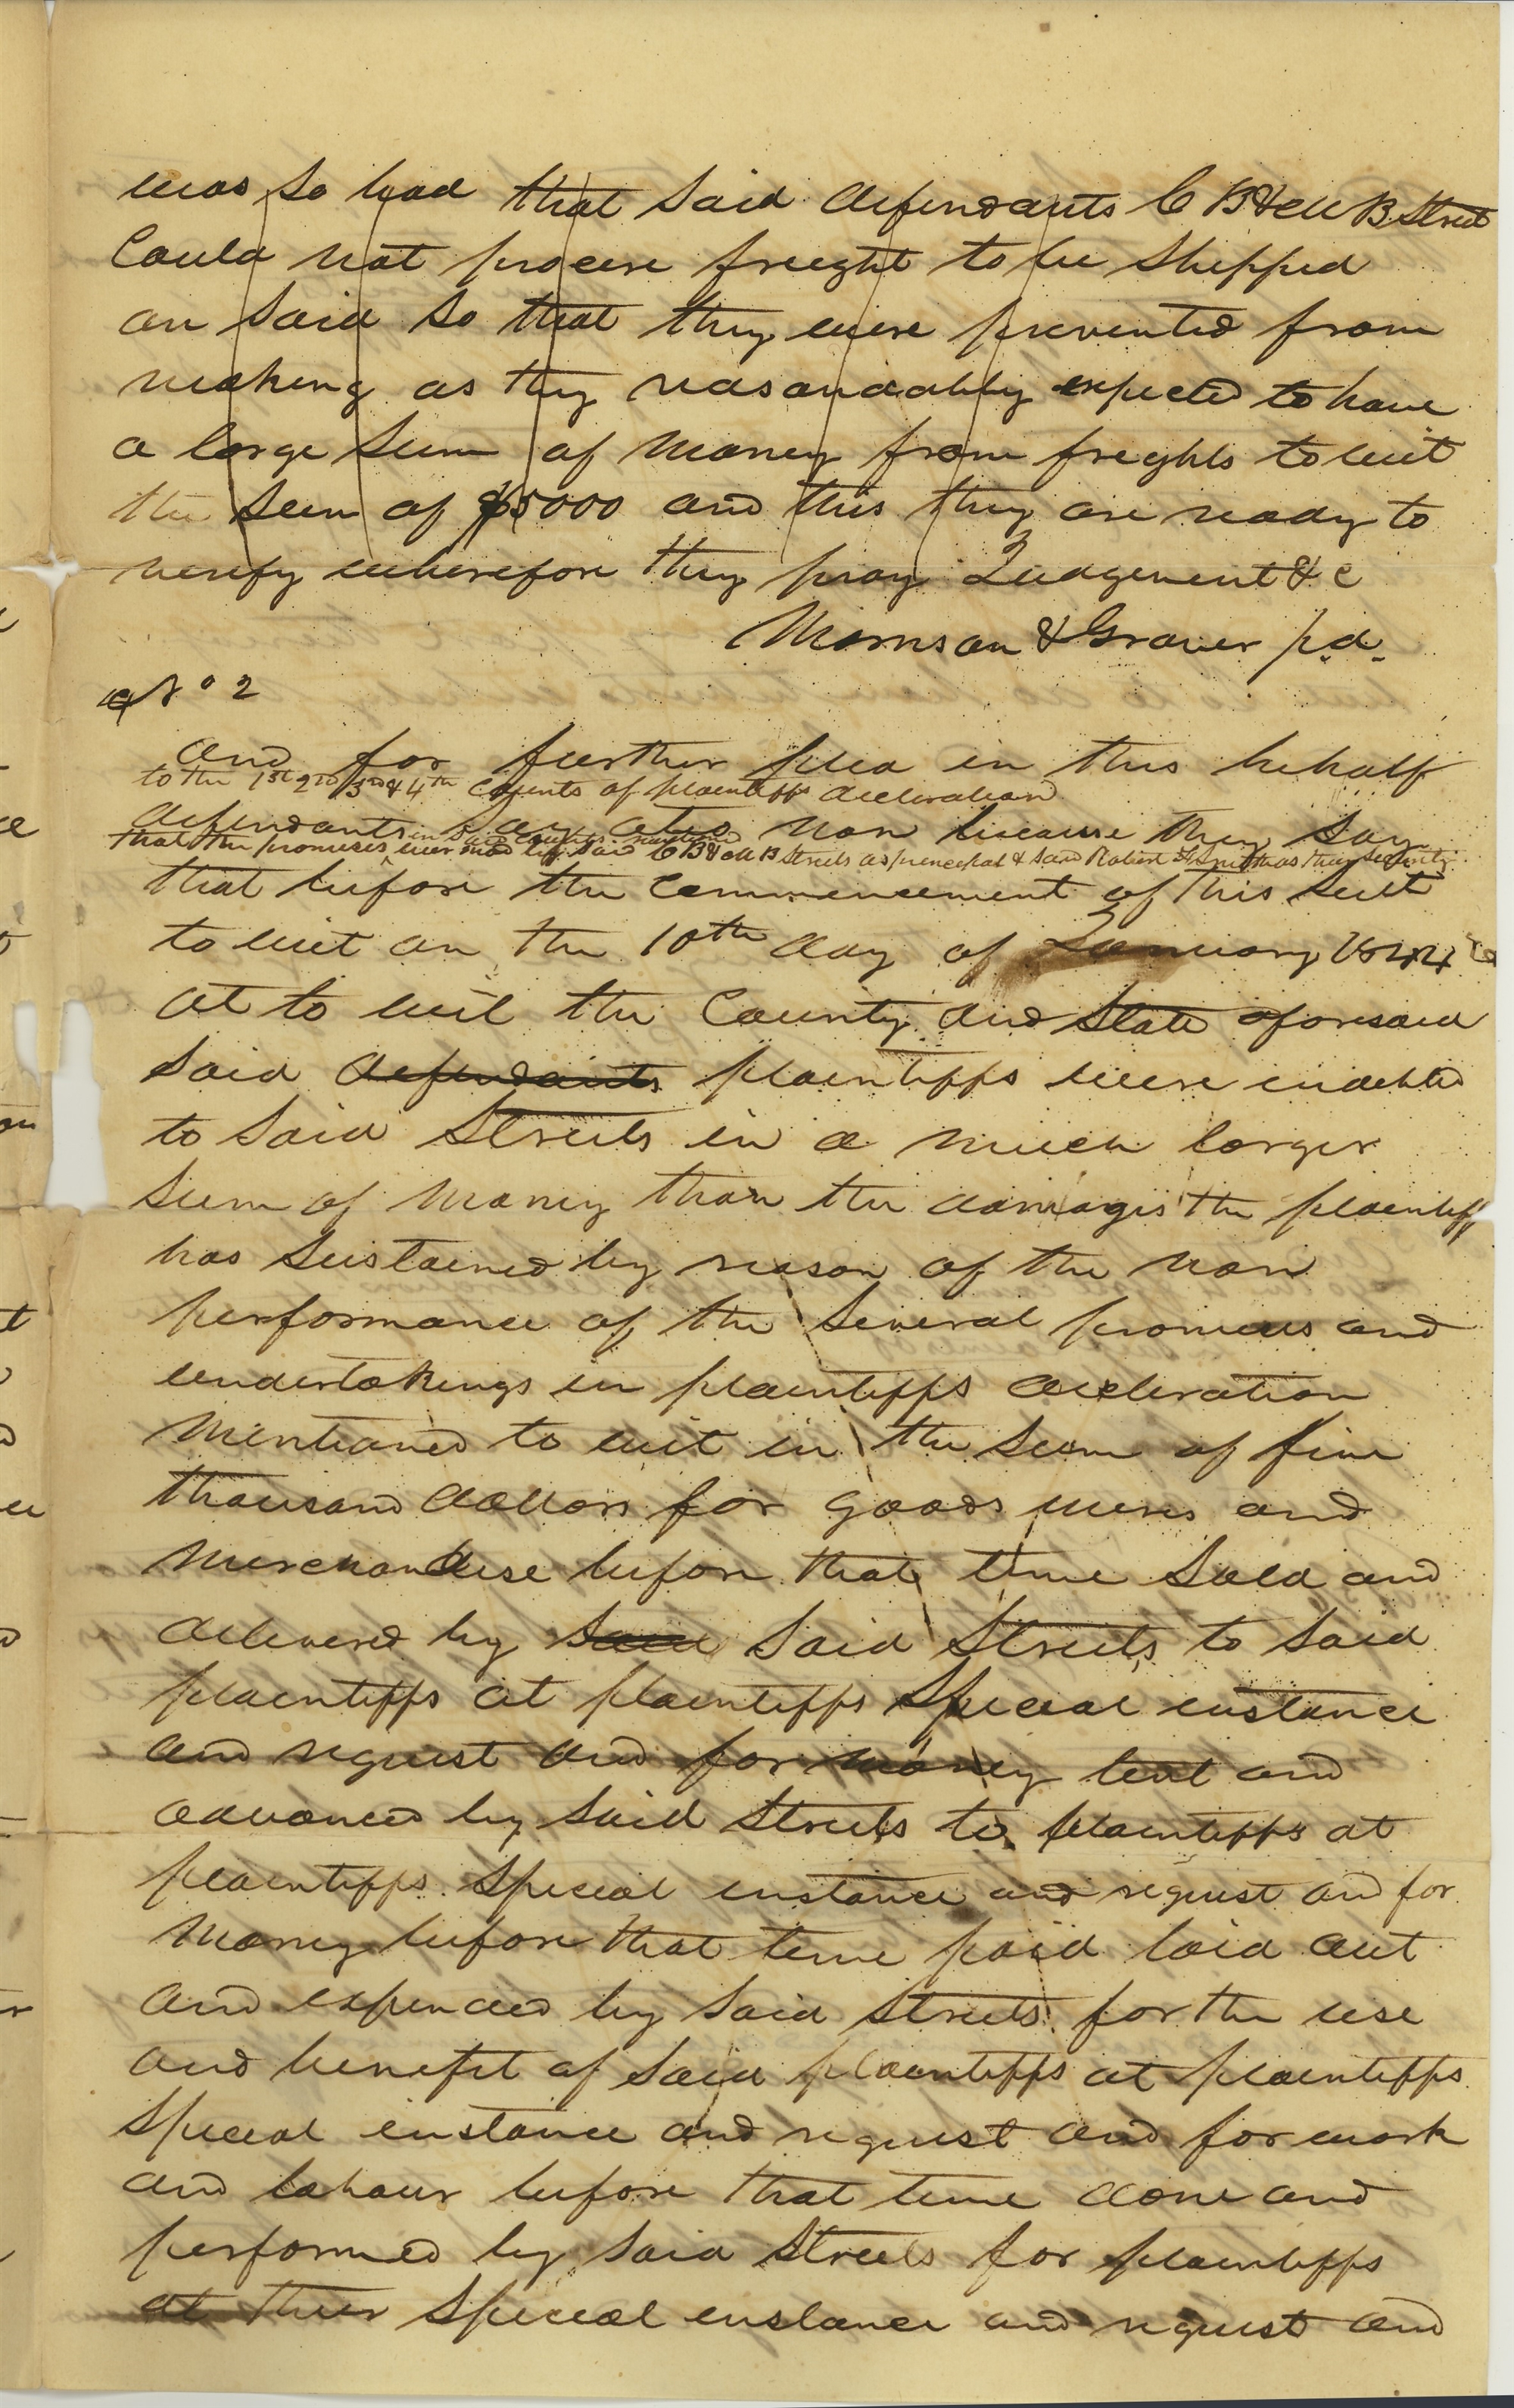 was so bad that said defendants C B & M B Street
Could not procure freight to be shipped
on said so that they were prevented from
making as they reasonably expected to have
a large sum of money from freights to wit
the sum of $5000 and this they are ready to
verify wherefore they pray Judgement &c
Morrison & Grover p.d.
No 2
And for further plea in this behalf
to the 1st 2nd 3rd & 4th Counts of plaintiffs declaration
defendants say actio non because they say
in said counts mentioned
that the promises were made by said C B & M B Streets as principal & said Robert G Smith as their security
that before the commencement of this suit
to wit on the 10th day of January 1844
at to wit the County and State aforesaid
said defendants plaintiffs were indebted
to said Streets in a much larger
sum of money than the damages the plaintiff
has sustained by reason of the non
performance of the several promises and
undertakings in plaintiffs decleration
mentioned to wit in the sum of five
thousand dollars for goods wares and
merchandise before that time sold and
delivered by said said Streets to said
plaintiffs at plaintiffs special instance
and request and for money lent and
advanced by said Streets to plaintiffs at
plaintiffs special instance and request and for
money before that time paid laid out
and expended by said Streets for the use
and benefit of said plaintiffs at plaintiffs
special instance and request and for work
and labour before that time done and
performed by said Streets for plaintiffs
at their special instance and request and